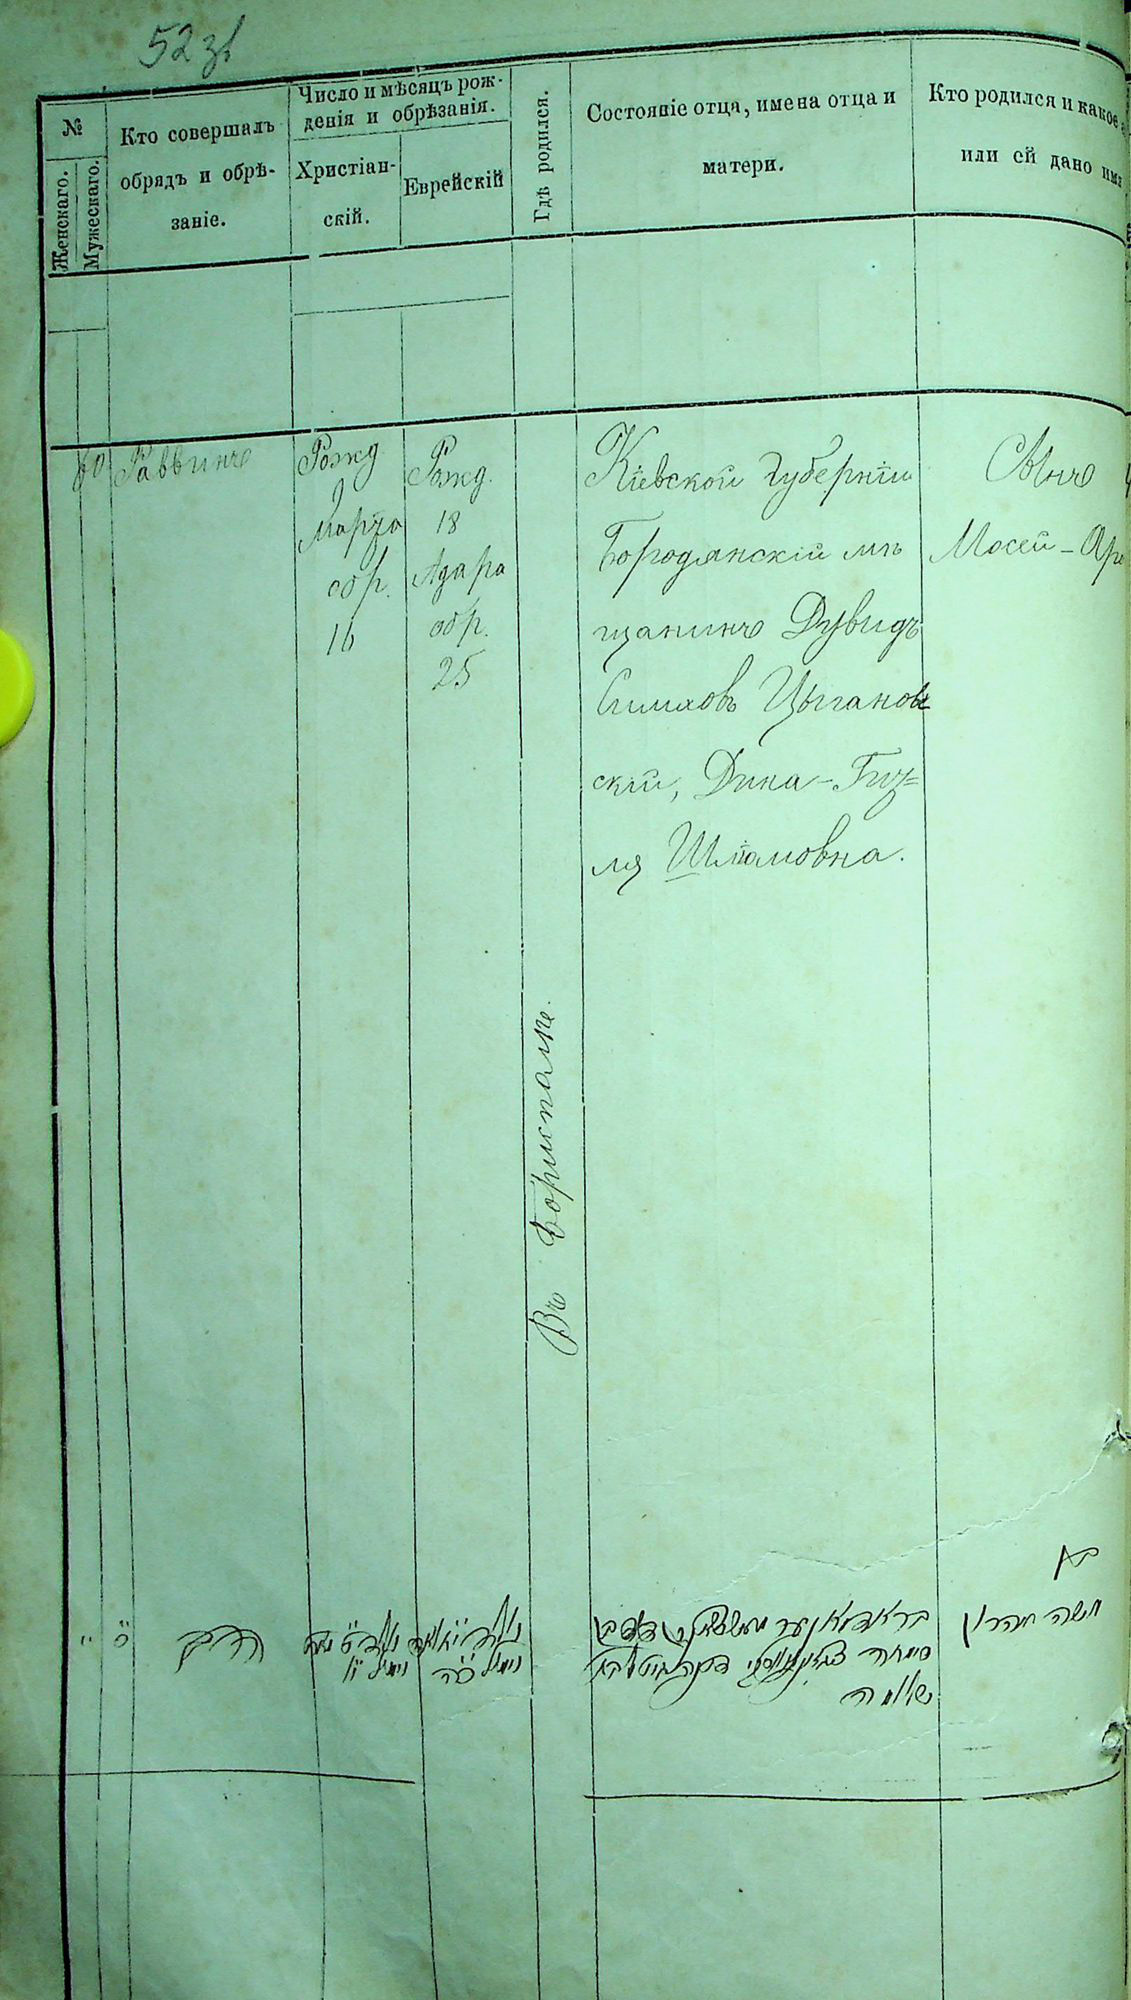 52 зв
№
Женскаго.
Мужескаго.
Кто совершалъ
обрядъ и обрѣ-
заніе.
Число и мѣсяцъ рож-
денія и обрѣзанія.
Христіан-
скій.
Еврейскій
Гдѣ родился.
Состояніе отца, имена отца и
матери.
Кто родился и какое
или ей дано имя
60
Раввинъ
Рожд
9
Марта
обр.
16
Рожд.
18
Адара
обр.
25
Въ Борисполѣ.
Кіевской губерніи
Бородянскій мѣ
щанинъ Дувидъ
Симховъ Цыганов=
скій, Дина-Гиз=
ля Шліомовна.
Сынъ
Мосей-Аро
בן
משה אהרון
הרב
נולד
סימחה
שלמה